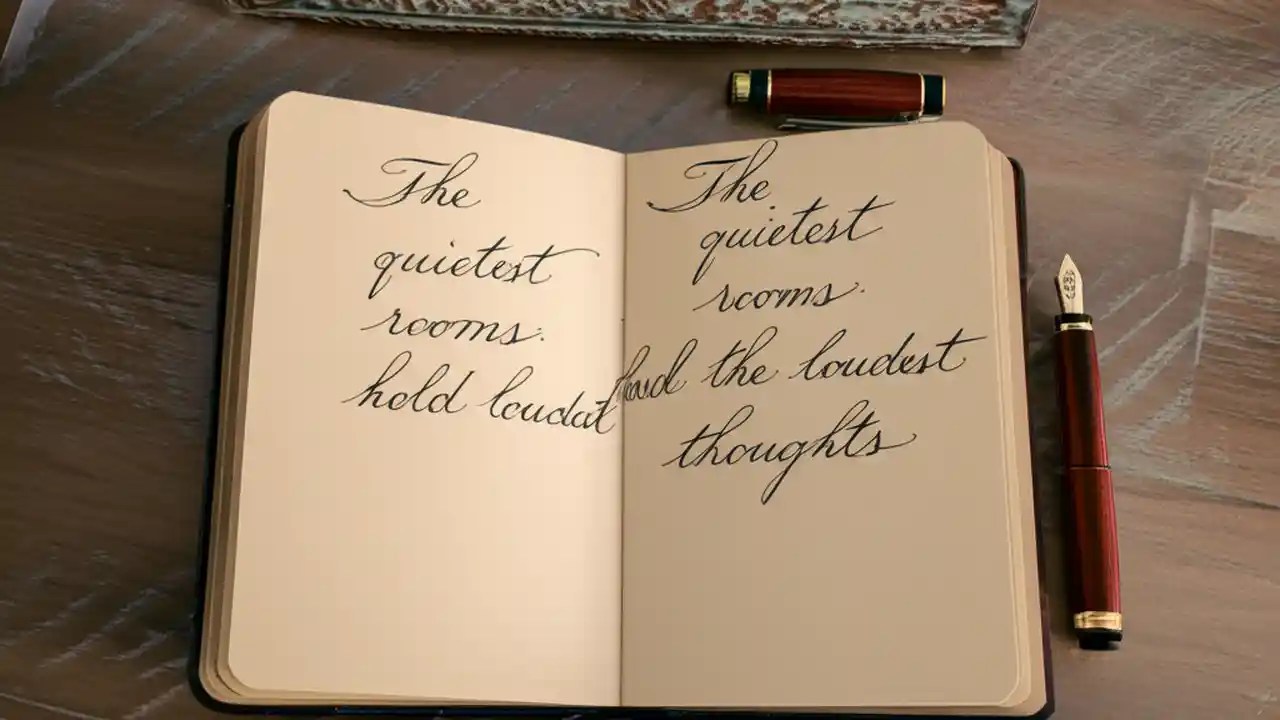 The
quietest
rooms.
hold loudat
The
quietest
rooms.
the loudest
thoughts